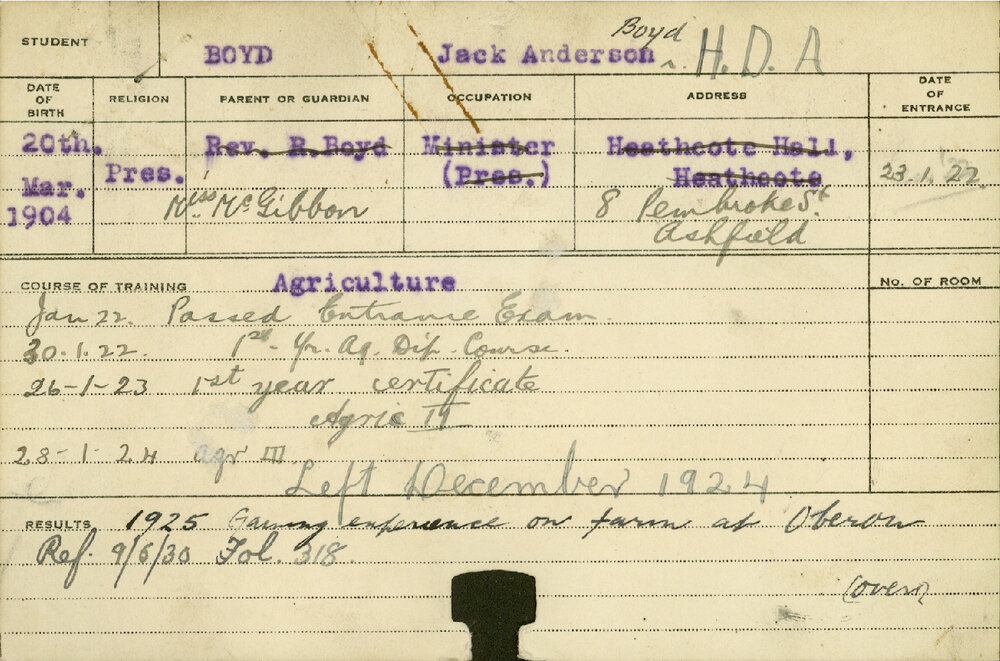 STUDENT BOYD Jack Anderson Boyd H.D.A
DATE OF BIRTH RELIGION PARENT OR GUARDIAN OCCUPATION ADDRESS DATE OF ENTRANCE
20th. Rev. R.Boyd Minister Heathcote Hall,
Mar. Pres. (Pres.) Heathcote 23.1.22
1904 Miss McGibbon 8 Pembroke St.
Ashfield
COURSE OF TRAINING Agriculture No. OF ROOM
Jan 22. Passed Entrance Exam.
30.1.22. 1st Yr. Ag. Dip. Course.
26-1-23 1st year certificate
Agric II
28-1-24 agr III
Left December 1924
RESULTS 1925 Gaining experience on farm at Oberon
Ref. 9/6/30 Fol. 318.
(over)